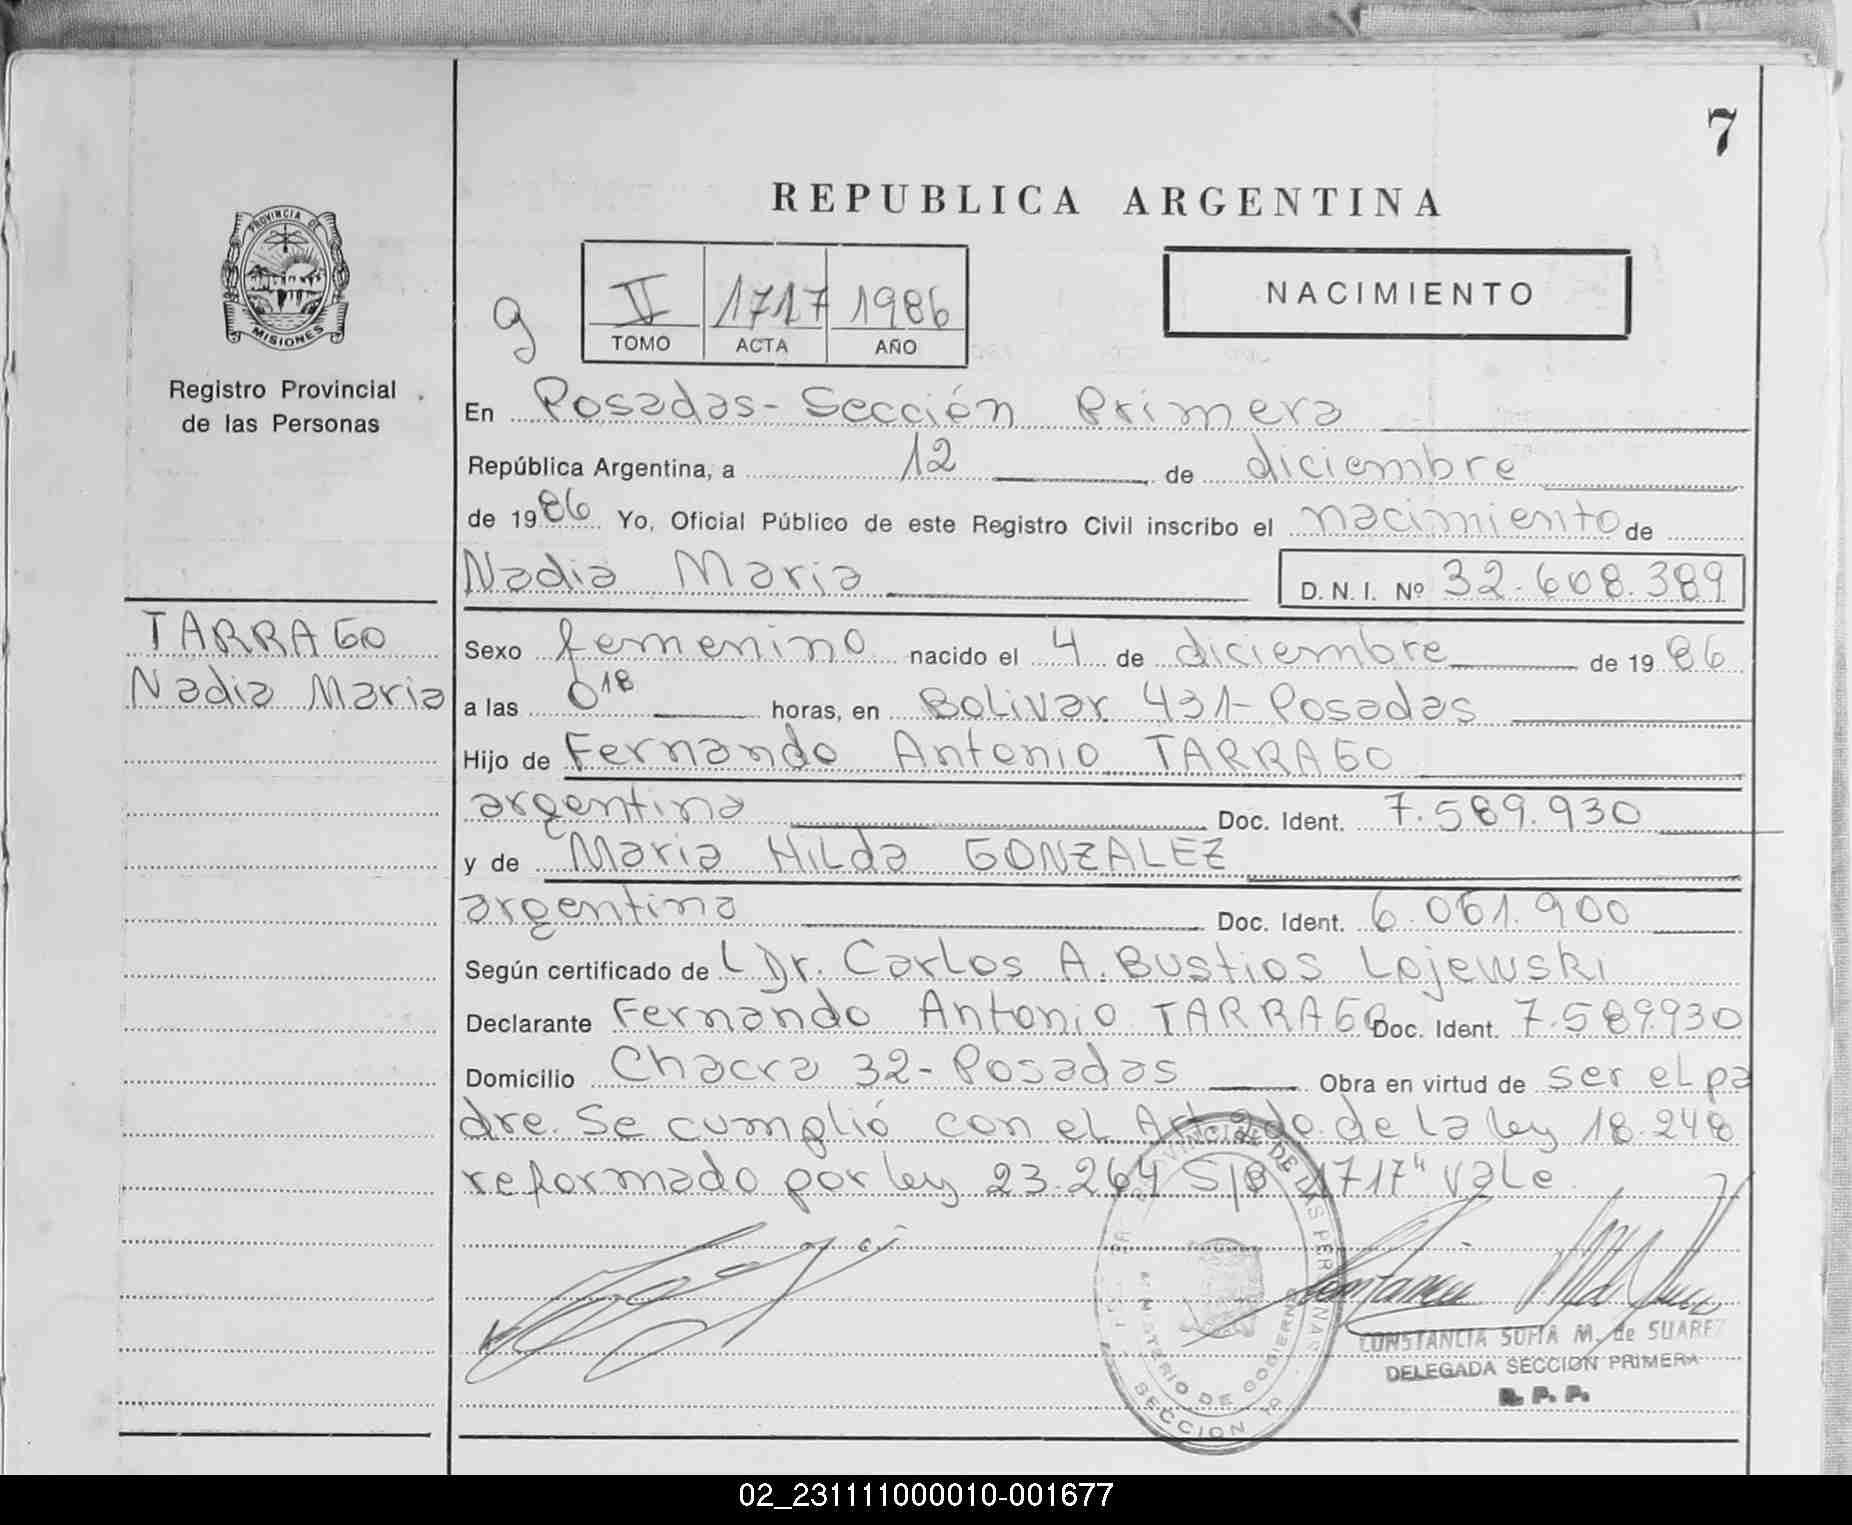 7
REPUBLICA ARGENTINA
PROVINCIA DE
MISIONES
Registro Provincial
de las Personas
NACIMIENTO
g
II 1717 1986
TOMO ACTA AÑO
En Posadas - Sección Primera
República Argentina, a 12 de diciembre
de 1986 Yo, Oficial Público de este Registro Civil inscribo el nacimiento de
Nadia Maria D. N. I. Nº 32.608.389
TARRAGO
Nadia Maria
Sexo femenino nacido el 4 de diciembre de 1986
a las 0 18 horas, en Bolivar 431 - Posadas
Hijo de Fernando Antonio TARRAGO
argentina Doc. Ident. 7.589.930
y de Maria Hilda GONZALEZ
argentina Doc. Ident. 6.061.900
Según certificado de L Dr. Carlos A. Bustios Lojewski
Declarante Fernando Antonio TARRAGO Doc. Ident. 7.589.930
Domicilio Chacra 32 - Posadas Obra en virtud de ser el pa
dre. Se cumplió con el Art 2do. de la ley 18.248
reformado por ley 23.264 S/B "1717" vale.
PROVINCIAL DE LAS PERSONAS
MINISTERIO DE GOBIERNO
SECCION 1ª
CONSTANCIA SOFIA M. de SUAREZ
DELEGADA SECCION PRIMERA
R. P. P.
02_231111000010-001677